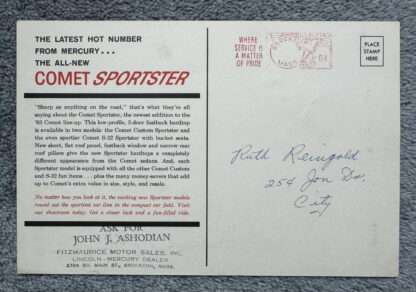 THE LATEST HOT NUMBER
FROM MERCURY...
THE ALL-NEW
COMET SPORTSTER
"Sharp as anything on the road," that's what they're all
saying about the Comet Sportster, the newest addition to the
'63 Comet line-up. This low-profile, 2-door fastback hardtop
is available in two models: the Comet Custom Sportster and
the even sportier Comet S-22 Sportster with bucket seats.
New short, flat roof panel, fastback window and narrow rear
roof pillars give the new Sportster hardtops a completely
different appearance from the Comet sedans. And, each
Sportster model is equipped with all the other Comet Custom
and S-22 fine items . . . plus the many money-savers that add
up to Comet's extra value in size, style, and resale.
No matter how you look at it, the exciting new Sportster models
round out the sportiest car line in the compact car field. Visit
our showroom today. Get a closer look and a fun-filled ride.
ASK FOR
JOHN J. ASHODIAN
FITZMAURICE MOTOR SALES, INC.
LINCOLN - MERCURY DEALER
MAIN ST., BROCKTON, MASS.
WHERE
SERVICE IS
A MATTER
OF PRIDE
BROCKTON
MASS.
U.S. POSTAGE
PLACE
STAMP
HERE
Ruth Reingold
254 Jon Dr.
City